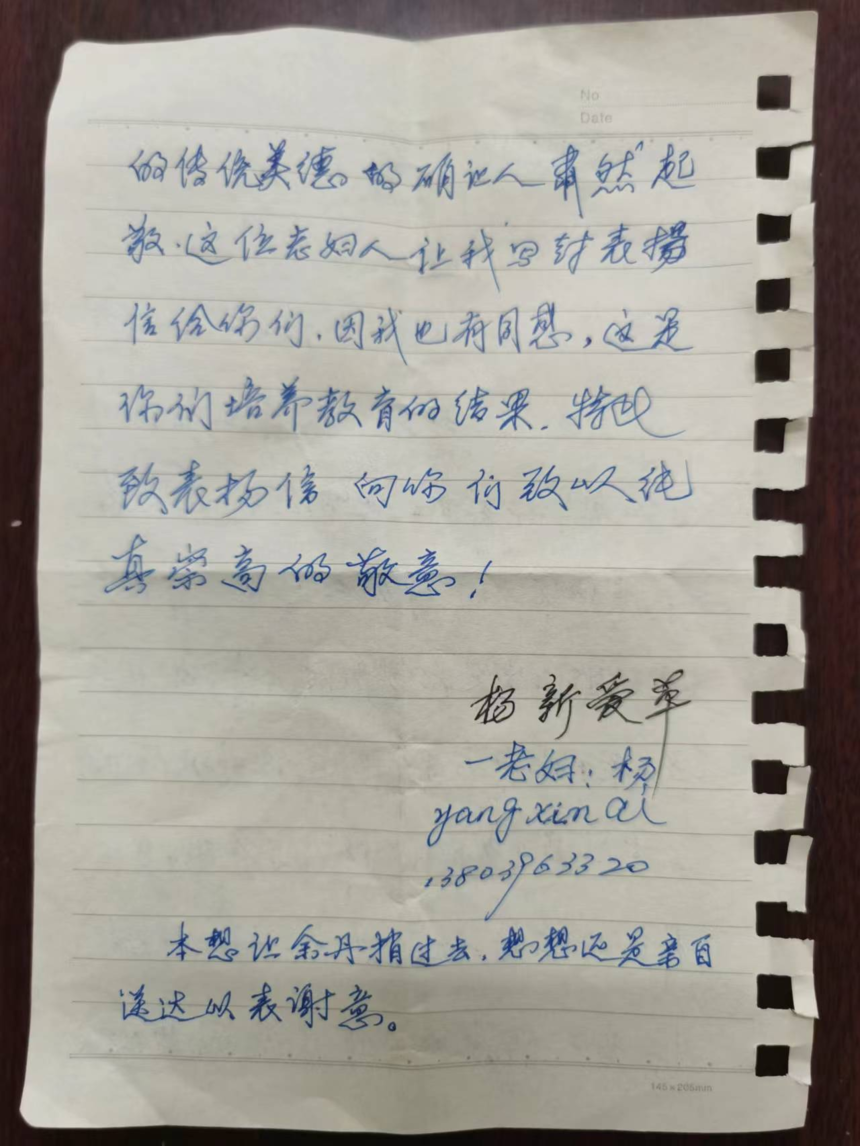 No
Date
的传统美德。的确让人肃然起
敬。这位老妇人让我写封表揚
信给你们。因我也有同感，这是
你们培养教育的结果。特此
致表扬信 向你们致以纯
真崇高的敬意！
杨新爱
一老妇：杨
yangxinai
13803963320
本想让余丹捎过去，想想还是亲自
送达以表谢意。
145×205mm